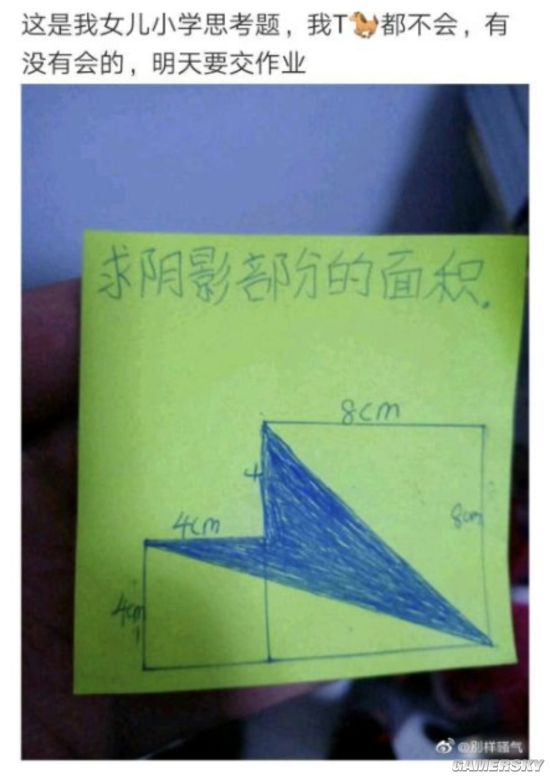 这是我女儿小学思考题，我T🐎都不会，有
没有会的，明天要交作业
求阴影部分的面积.
8cm
4
4cm
8cm
4cm
@别样骚气
GAMERSKY